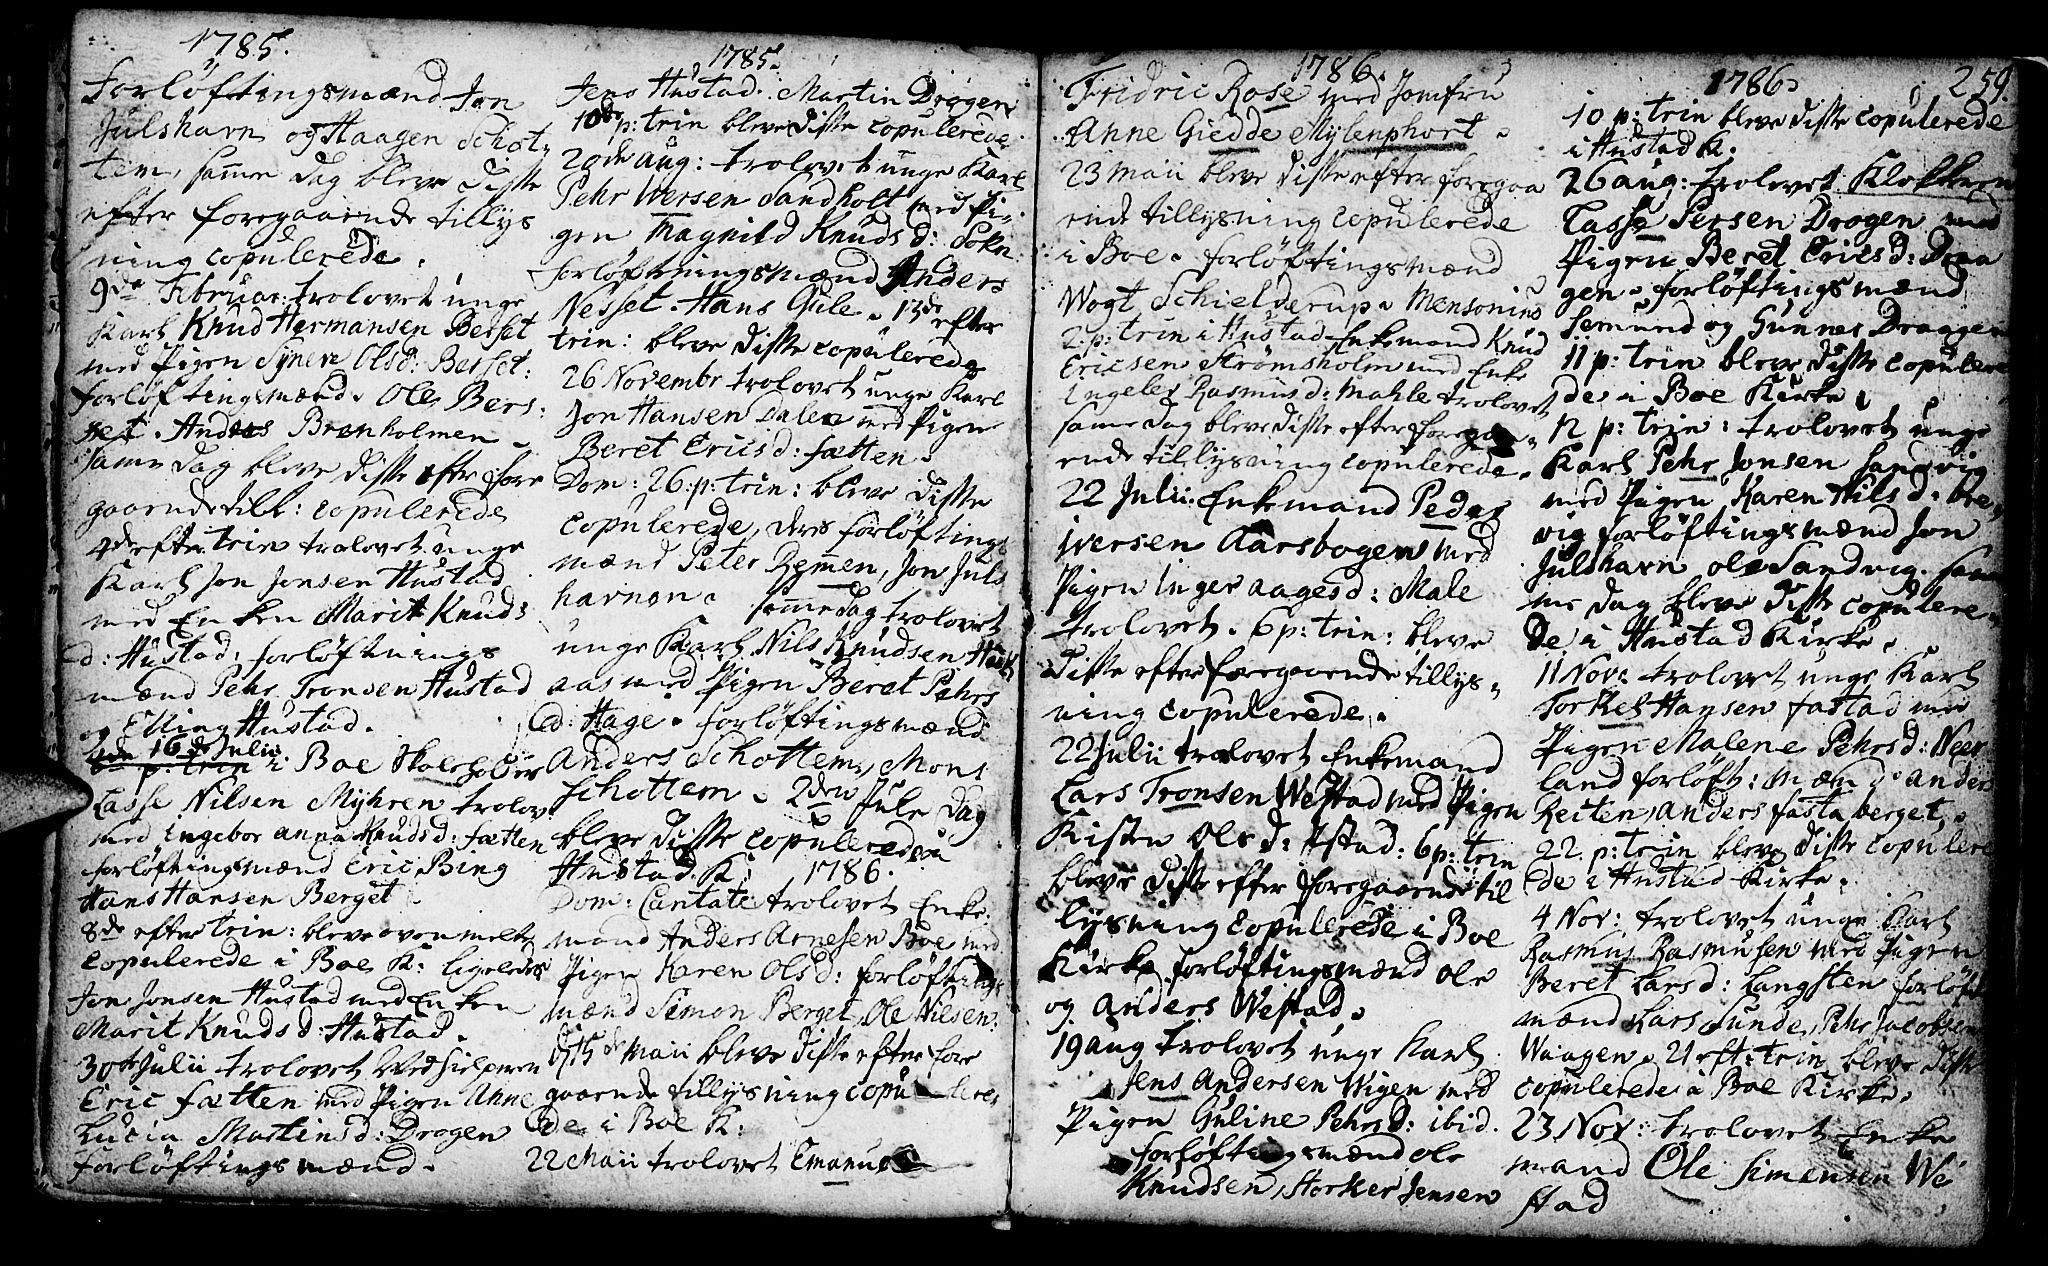 1785.
Forløftingsmænd Jon
Julshavn og Haagen Schot,
tem, samme dag bleve disse
efter foregaaende tillys
ning copulerede.
9de Februar: trolovet unge
Karl Knud Hermansen Berset
med Pigen Syneve Olsd: Berset:
forløftingsmænd. Ole Bers:
set. Anders Bronholmen.
samme dag bleve disse efter fore
gaaende till: copulerede
4de efter trin trolovet unge
Karl Jon Jonsen Hustad
med Enken Marit Knuds
d: Hustad, forløftnings
mænd Pehr Tronsen Hustad
og Elling Hustad.
16de Julii
p: trin i Boe Skoleholder
Lasse Nilsen Myhren trolov:
med Ingebor Anna Knudsd: Fætten
forløftingsmænd Eric Bing
Hans Hansen Berget
8de efter trin: bleve ovenmelte
copulerede i Boe K: ligeledes
Jon Jonsen Hustad med Enken
Marit Knudsd: Hustad.
30de Julii trolovet Medhielperen
Eric Fætten med Pigen Anne
Lucia Martinsd: Drogen
Forløftingsmænd.
1785.
Jens Hustad. Martin Drogen
10de p: trin bleve disse copulerede.
20de Aug: trolovet unge Karl
Pehr Iversen Sandholt med Pi,
gen Magnild Knudsd: Sokn
forløftningsmænd Anders
Nesset. Hans Gule. 13de efter
trin: bleve disse copulerede
26 Novembr trolovet unge Karl
Jon Hansen Dalen med Pigen
Beret Ericsd: Fætten.
Dom: 26: p: trin: bleve disse
copulerede, deres forløftings
mænd Peter Remmen, Jon Juls
havnen. samme dag trolovet
unge Karl Nils Knudsen
aas med Pigen Beret Pehrs
d: Hage. forløftingsmænd
Anders Schottem, Mons
Schottem. 2den Jule Dag
bleve disse copulerede i
Hustad K:
1786.
Dom: Cantate trolovet Enke,
mand Anders Arnesen Boe med
Pigen Karen Olsd: forløftings
mænd Simon Berget, Ole Nilsen.
d 15de Maii bleve disse efter fore
gaaende tillysning copulere,
de i Boe K:
22 Maii trolovet Emanuel
1786.
Fridric Rose med Jomfru
Anne Giedde Mylenphort.
23 Maii bleve disse efter foregaa
ende tillysning copulerede
i Boe. forløftingsmænd
Wogt Schielderup. Mensonius
2. p: trin i Hustad Enkemand Knud
Ericsen Strømsholm med Enke
Ingeleg Rasmusd: Mahle trolovet
samme dag bleve disse efter foregaa,
ende tillysning copulerede.
22 Julii Enkemand Peder
Iversen Aarsbogen med
Pigen Inger Aagesd: Male
trolovet. 6 p: trin: bleve
disse efter foregaaende tillys,
ning copulerede.
22 Julii trolovet Enkemand
Lars Tronsen Westad med Pigen
Kisten Olsd: Istad: 6 p: trin
bleve disse efter foregaaende til
lysning copulerede i Boe
Kirke, forløftingsmænd Ole
og Anders Westad.
19 Aug trolovet unge Karl
Jens Andersen Wigen med
Pigen Guline Pehrsd: ibid.
forløftingsmænd Ole
Knudsen, Storker Jensen
1786.
259.
10 p: trin bleve disse copulerede
i Hustad K.
26 Aug: trolovet Klokkeren
Lasse Persen Drogen med
Pigen Beret Ericsd: Draa
gen. forløftingsmænd
Semund og Gunner Draagen
11 p: trin bleve disse copulere
de i Boe Kirke.
12 p: trin: trolovet unge
Karl Pehr Jonsen Sandvig
med Pigen Karen Nilsd: Bre,
vig forløftingsmænd Jon
Julshavn Ole Sandvig. sam
me dag bleve disse copulere,
de i Hustad Kirke.
11 Nov: trolovet unge Karl
Torkel Hansen Fastad med
Pigen Malene Pehrsd: Neer
land forløft: mænd: Anders
Reiten, Anders Fasta berget.
22. p: trin bleve disse copulere
de i Hustad Kirke.
4 Nov: trolovet unge Karl
Rasmus Rasmusen med Pigen
Beret Larsd: Langsten forløft
mænd Lars Sunde, Pehr Jacobsen
Waagen. 21 eft: trin bleve disse
copulerede i Boe Kirke.
23 Nov: trolovet Enke
mand Ole Simensen We
stad